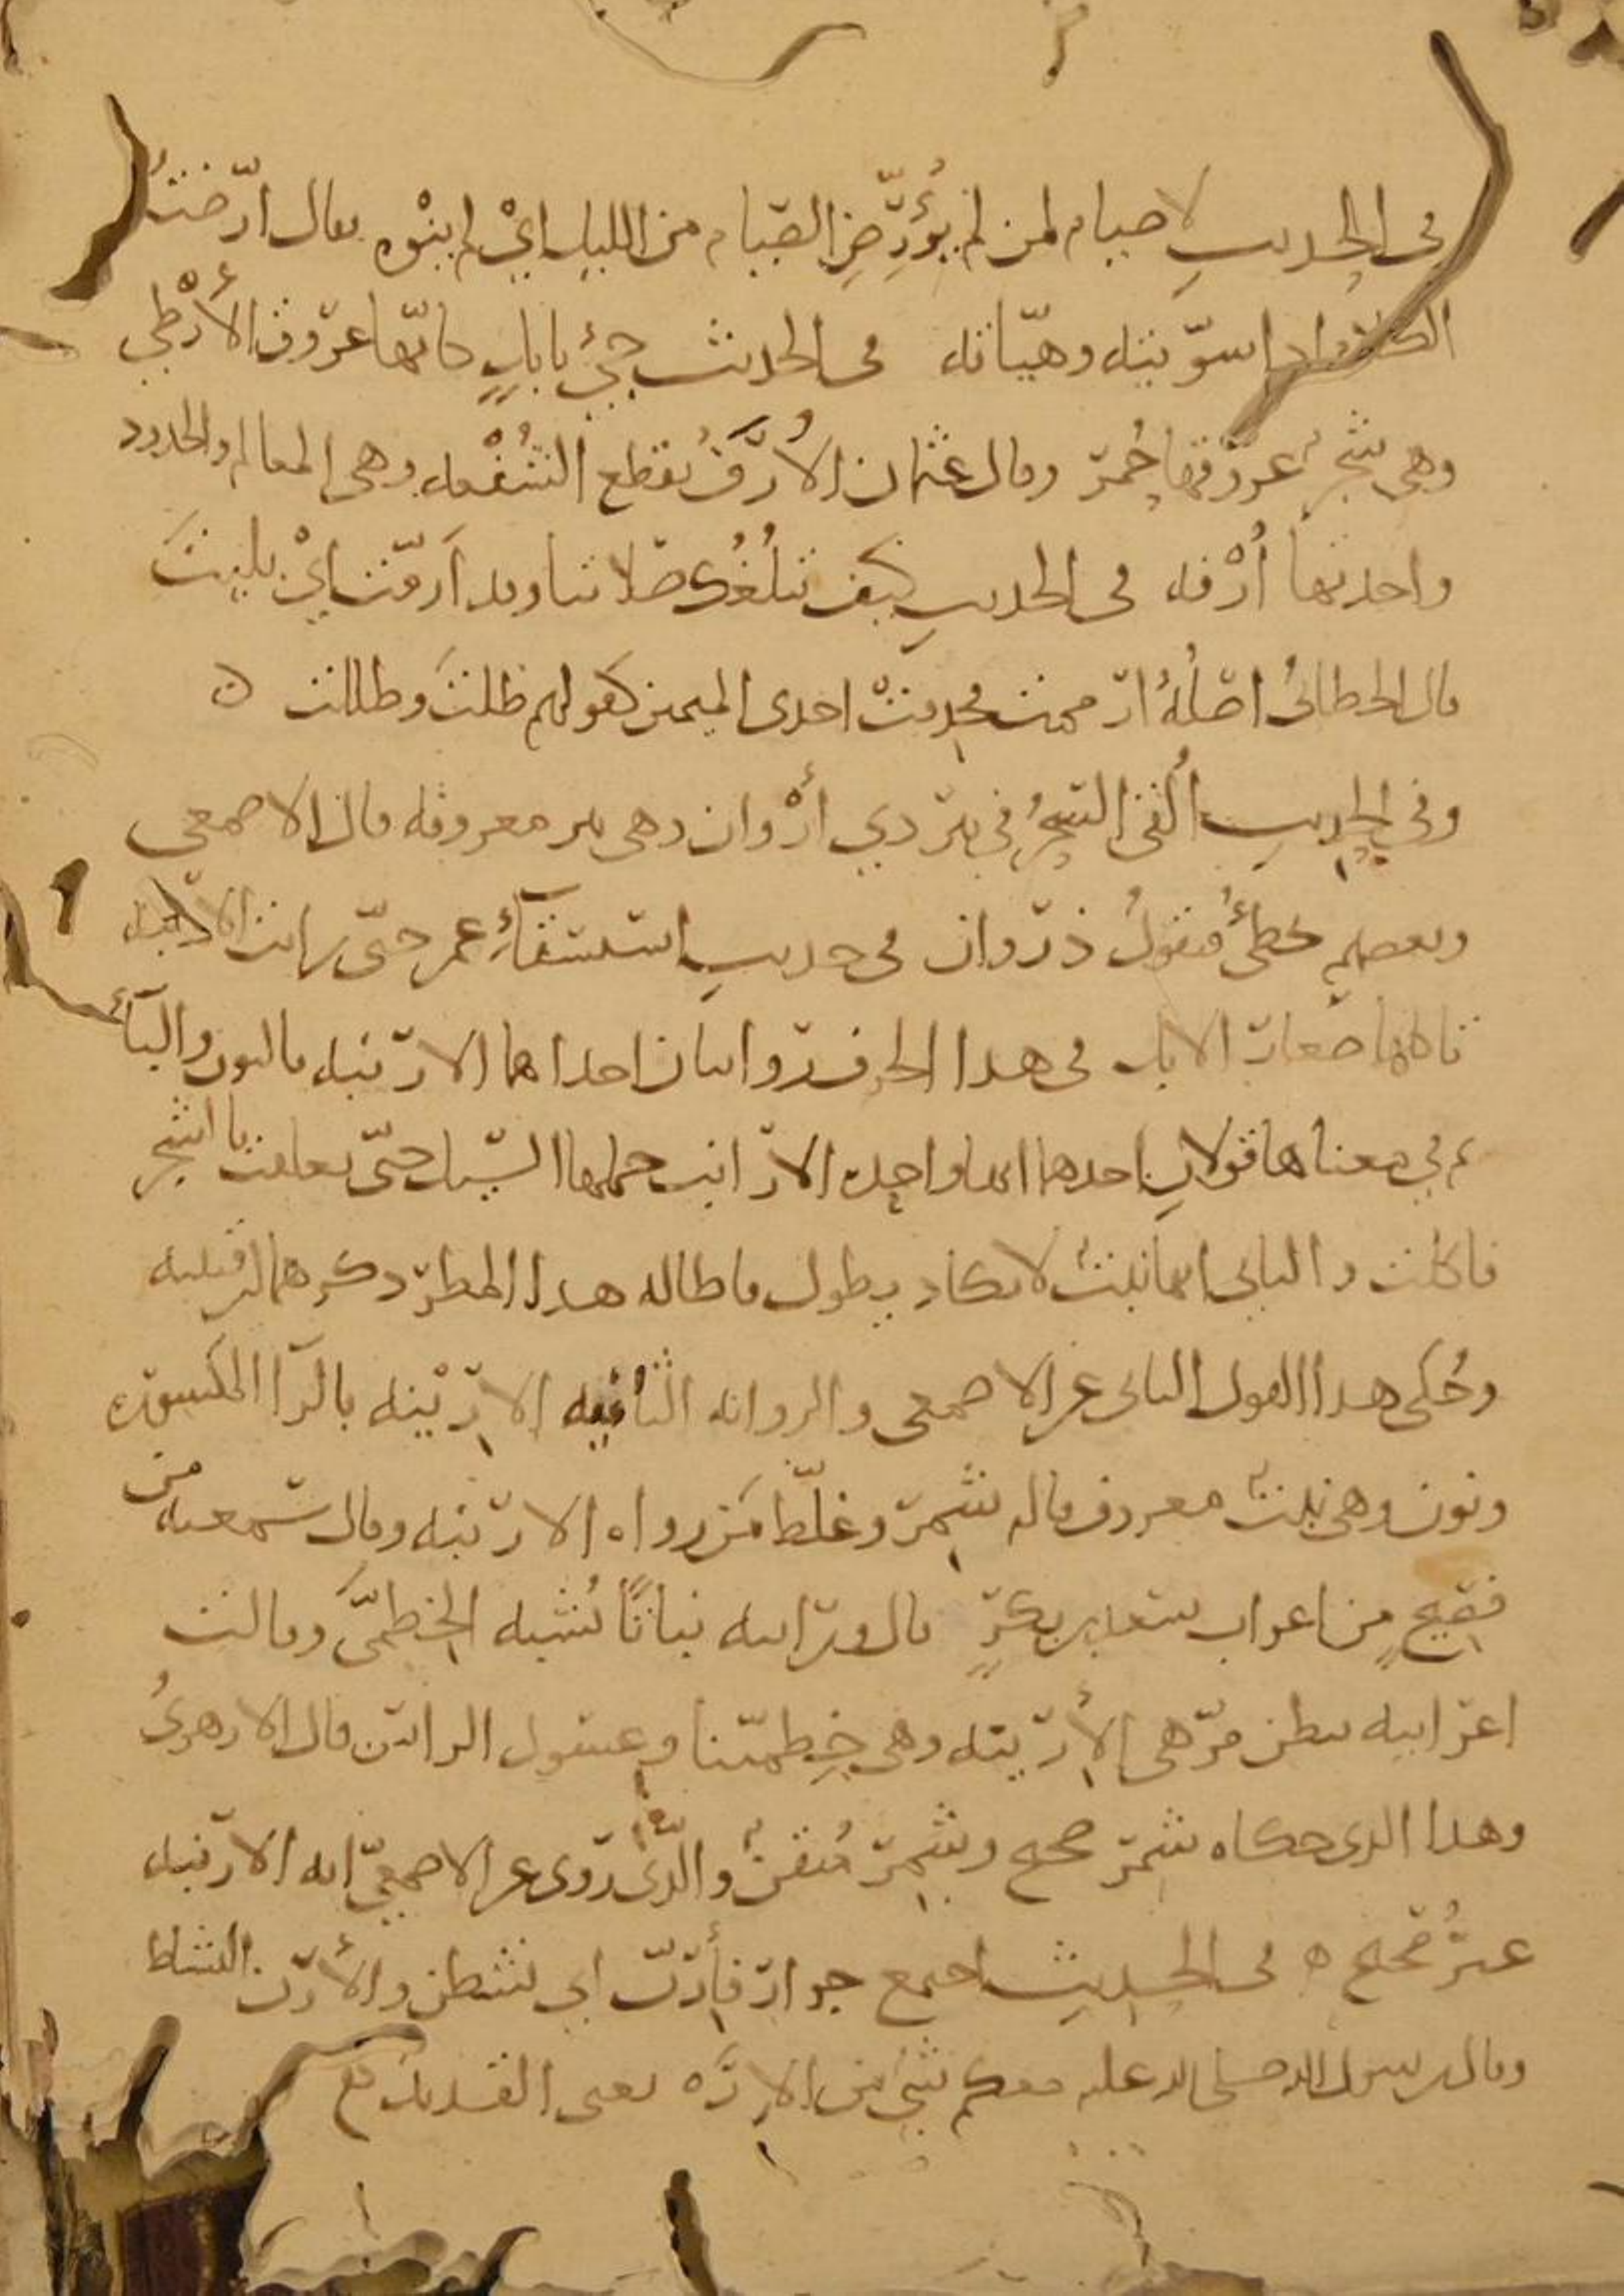 في الحديث لا صيام لمن لم يُؤَرِّضِ الصيام من الليل اي لم ينوه يقال ارّضتُ
الكلام اذا سوّيته وهيّأته في الحديث جيءَ بابلٍ كانّها عروق الأَرْطى
وهي شجرٌ عروقها حُمر وقال عثمان الأُرَفُ تقطع الشُفْعه وهي المعالم والحدود
واحدتها أُرْفه في الحديث كيف تبلُغُك صلاتنا وقد أَرَمْتَ اي بليتَ
قال الخطابيُ اصلُهُ ارممت فحذفت احدى الميمين كقولهم ظلتَ وظللت ه
وفي الحديث أُلقي السِحرُ في بئر ذي أَرْوان وهي بئر معروفه قال الاصمعي
وبعضهم يخطئُ فيقولُ ذروان في حديث استسقآءِ عمر حتّى رايت الارنبه
تاكلها صغار الابل في هذا الحرف روايتان احداهما الارنبه بالنون والبآء
وفي معناها قولانِ احدهما انها واحده الارانب حملها السّيل حتّى تعلقت بالشجر
فاكلت والثاني انها نبتٌ لا يكاد يطول فاطاله هذا المطر ذكرهما ابن قتيبه
وحُكي هذا القول الثاني عن الاصمعي والروايه الثانيه الارِيْنه بالرآ المكسوره
ونون وهي نبتٌ معروف قاله شمر وغلّط مَن رواه الارنبه وقال سمعته من
فصيحٍ من اعراب سعد بن بكرٍ قال ورايته نباتًا يُشبه الخِطميَّ وقالت
اعرابيه ببطن مرّ هي الأرينه وهي خِطميّنا وغسول الراس قال الازهريُ
وهذا الذي حكاه شمر صحيح وشِمر مُتقنٌ والّذي رَوى عن الاصمعيّ انه الارنبه
غيرُ صحيح ه في الحديث اجتمع جوارٍ فأَرِنّ اي نشطن والأَرَن النشاط
وقال رسول الله صلى الله عليه معكم شيءٌ من الاِرَه يعني القديد مع